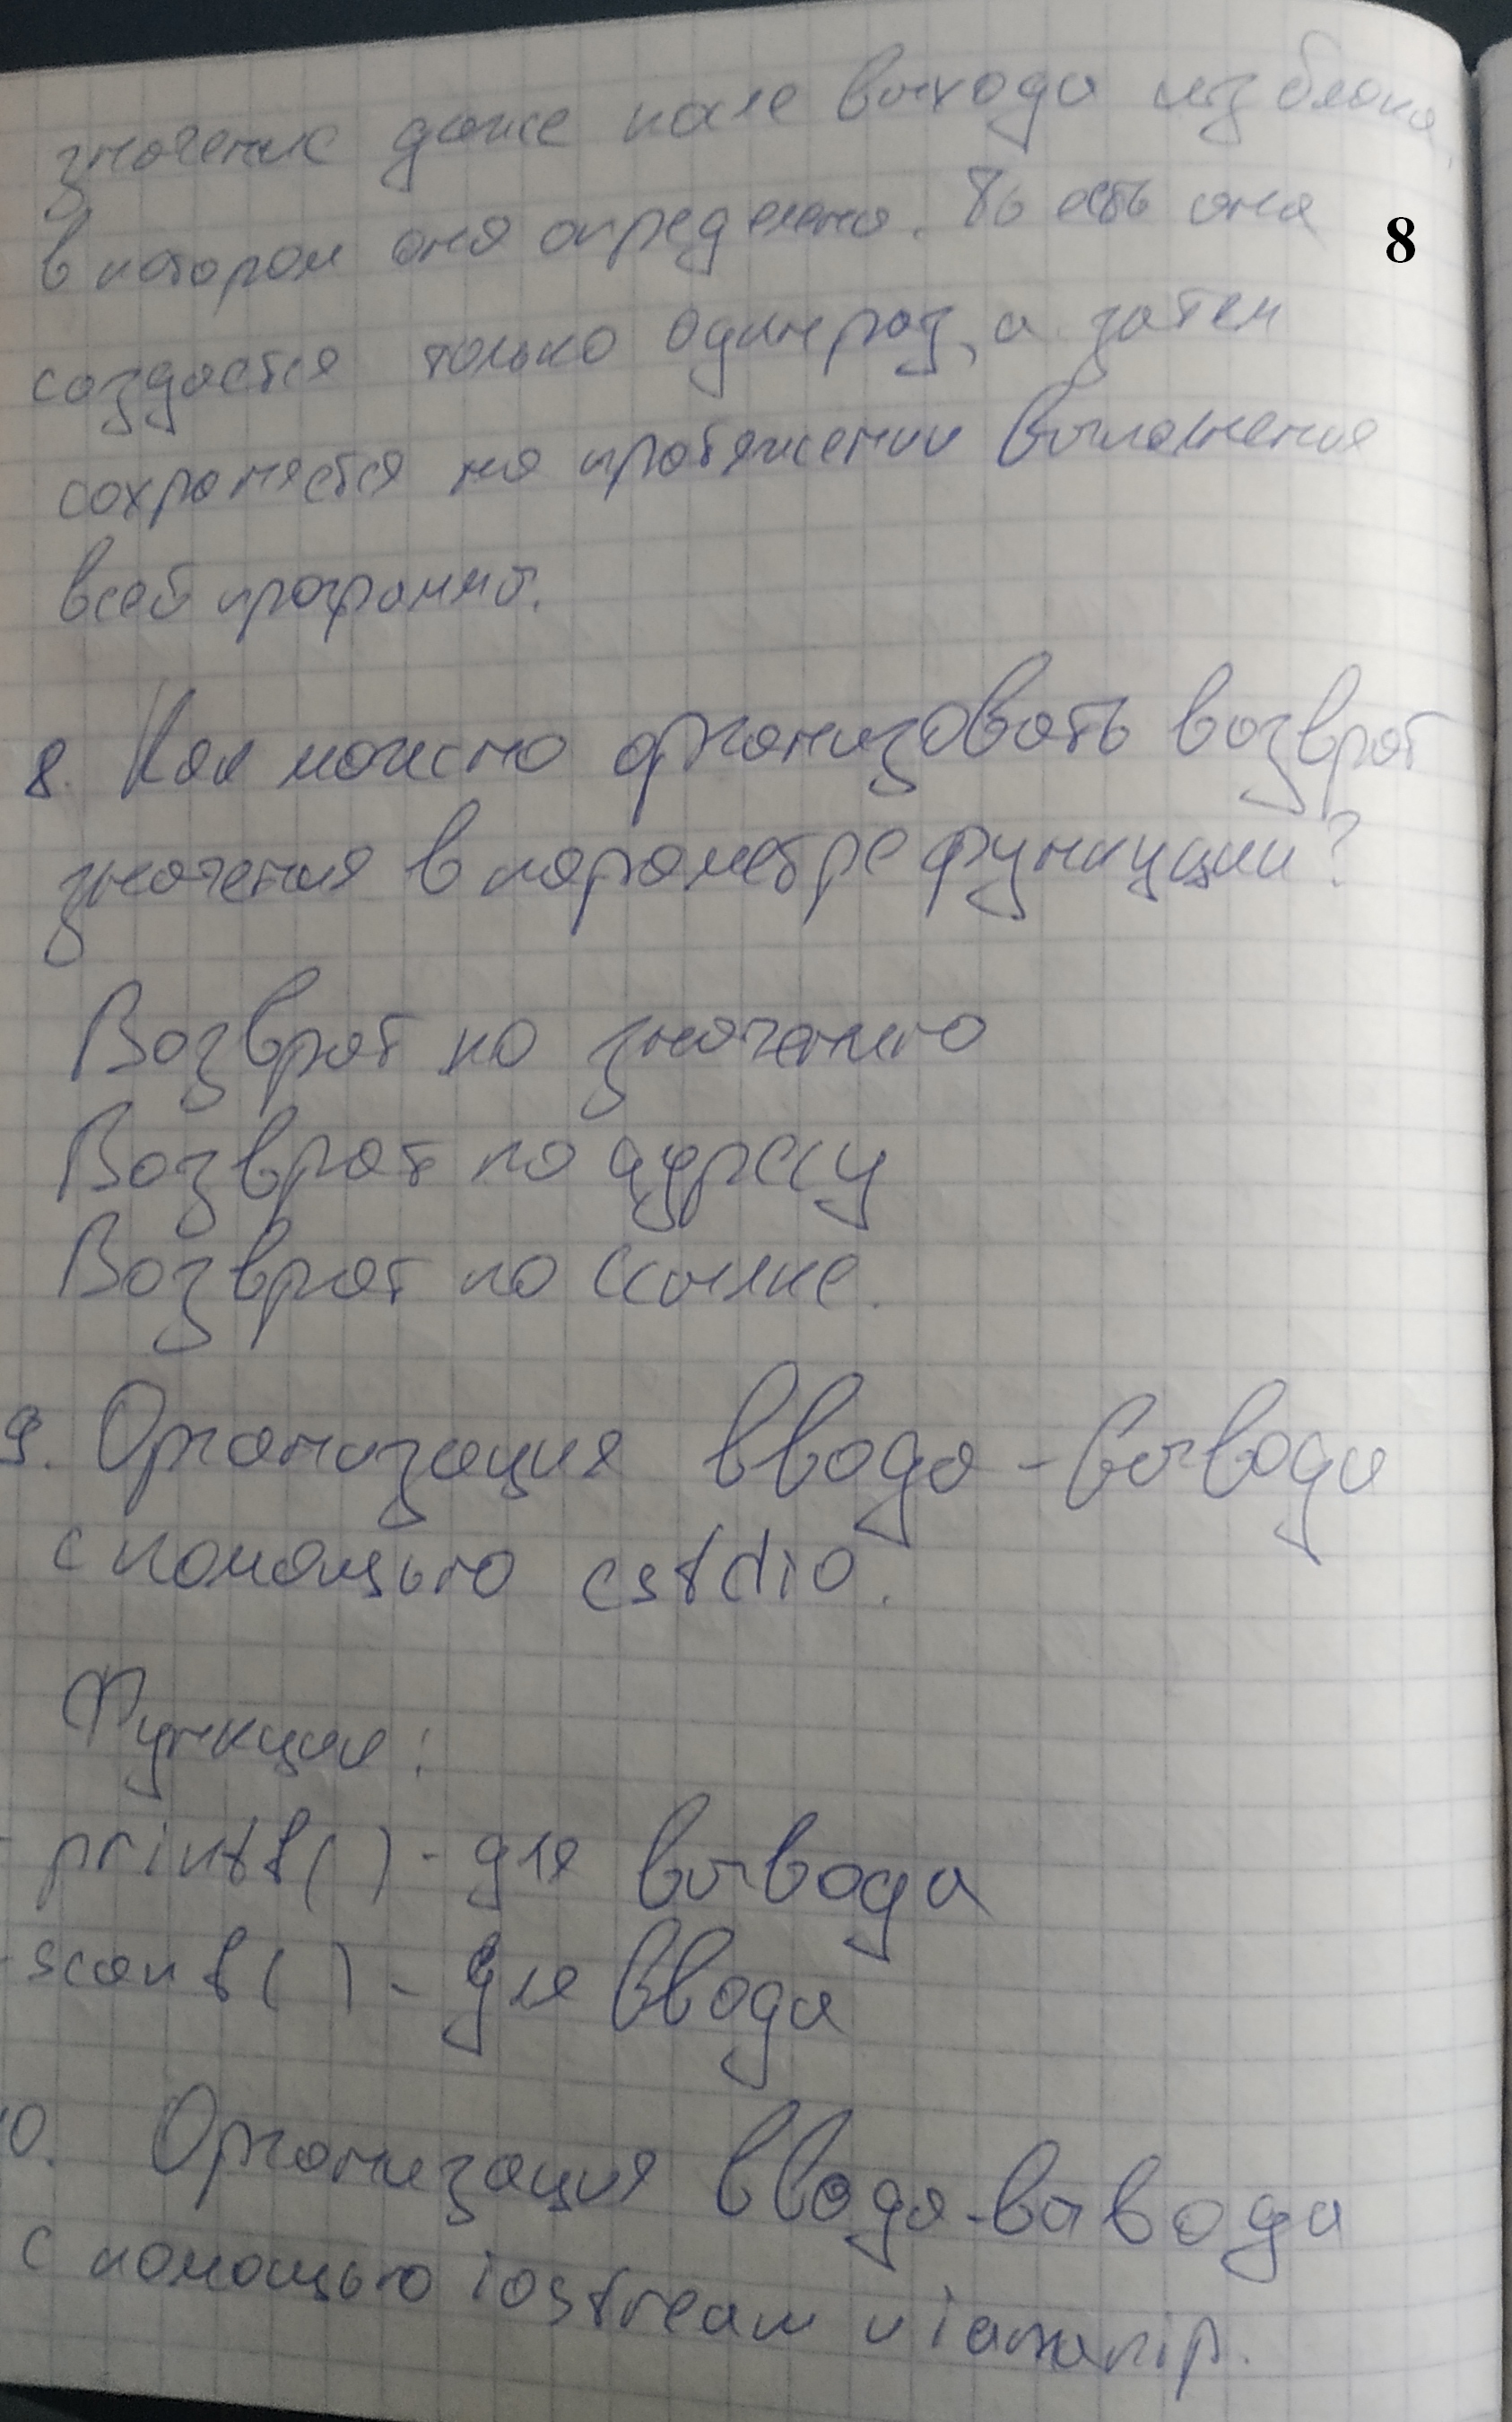 значение даже после выхода из блока,
в котором она определена. То есть она
8
создается только один раз, а затем
сохраняется на протяжении выполнения
всей программы.
8. Как можно организовать возврат
значения в параметре функции?
Возврат по значению
Возврат по адресу
Возврат по ссылке.
9. Организация ввода-вывода
с помощью cstdio.
Функции:
- printf() - для вывода
- scanf() - для ввода
10. Организация ввода-вывода
с помощью iostream и iomanip.